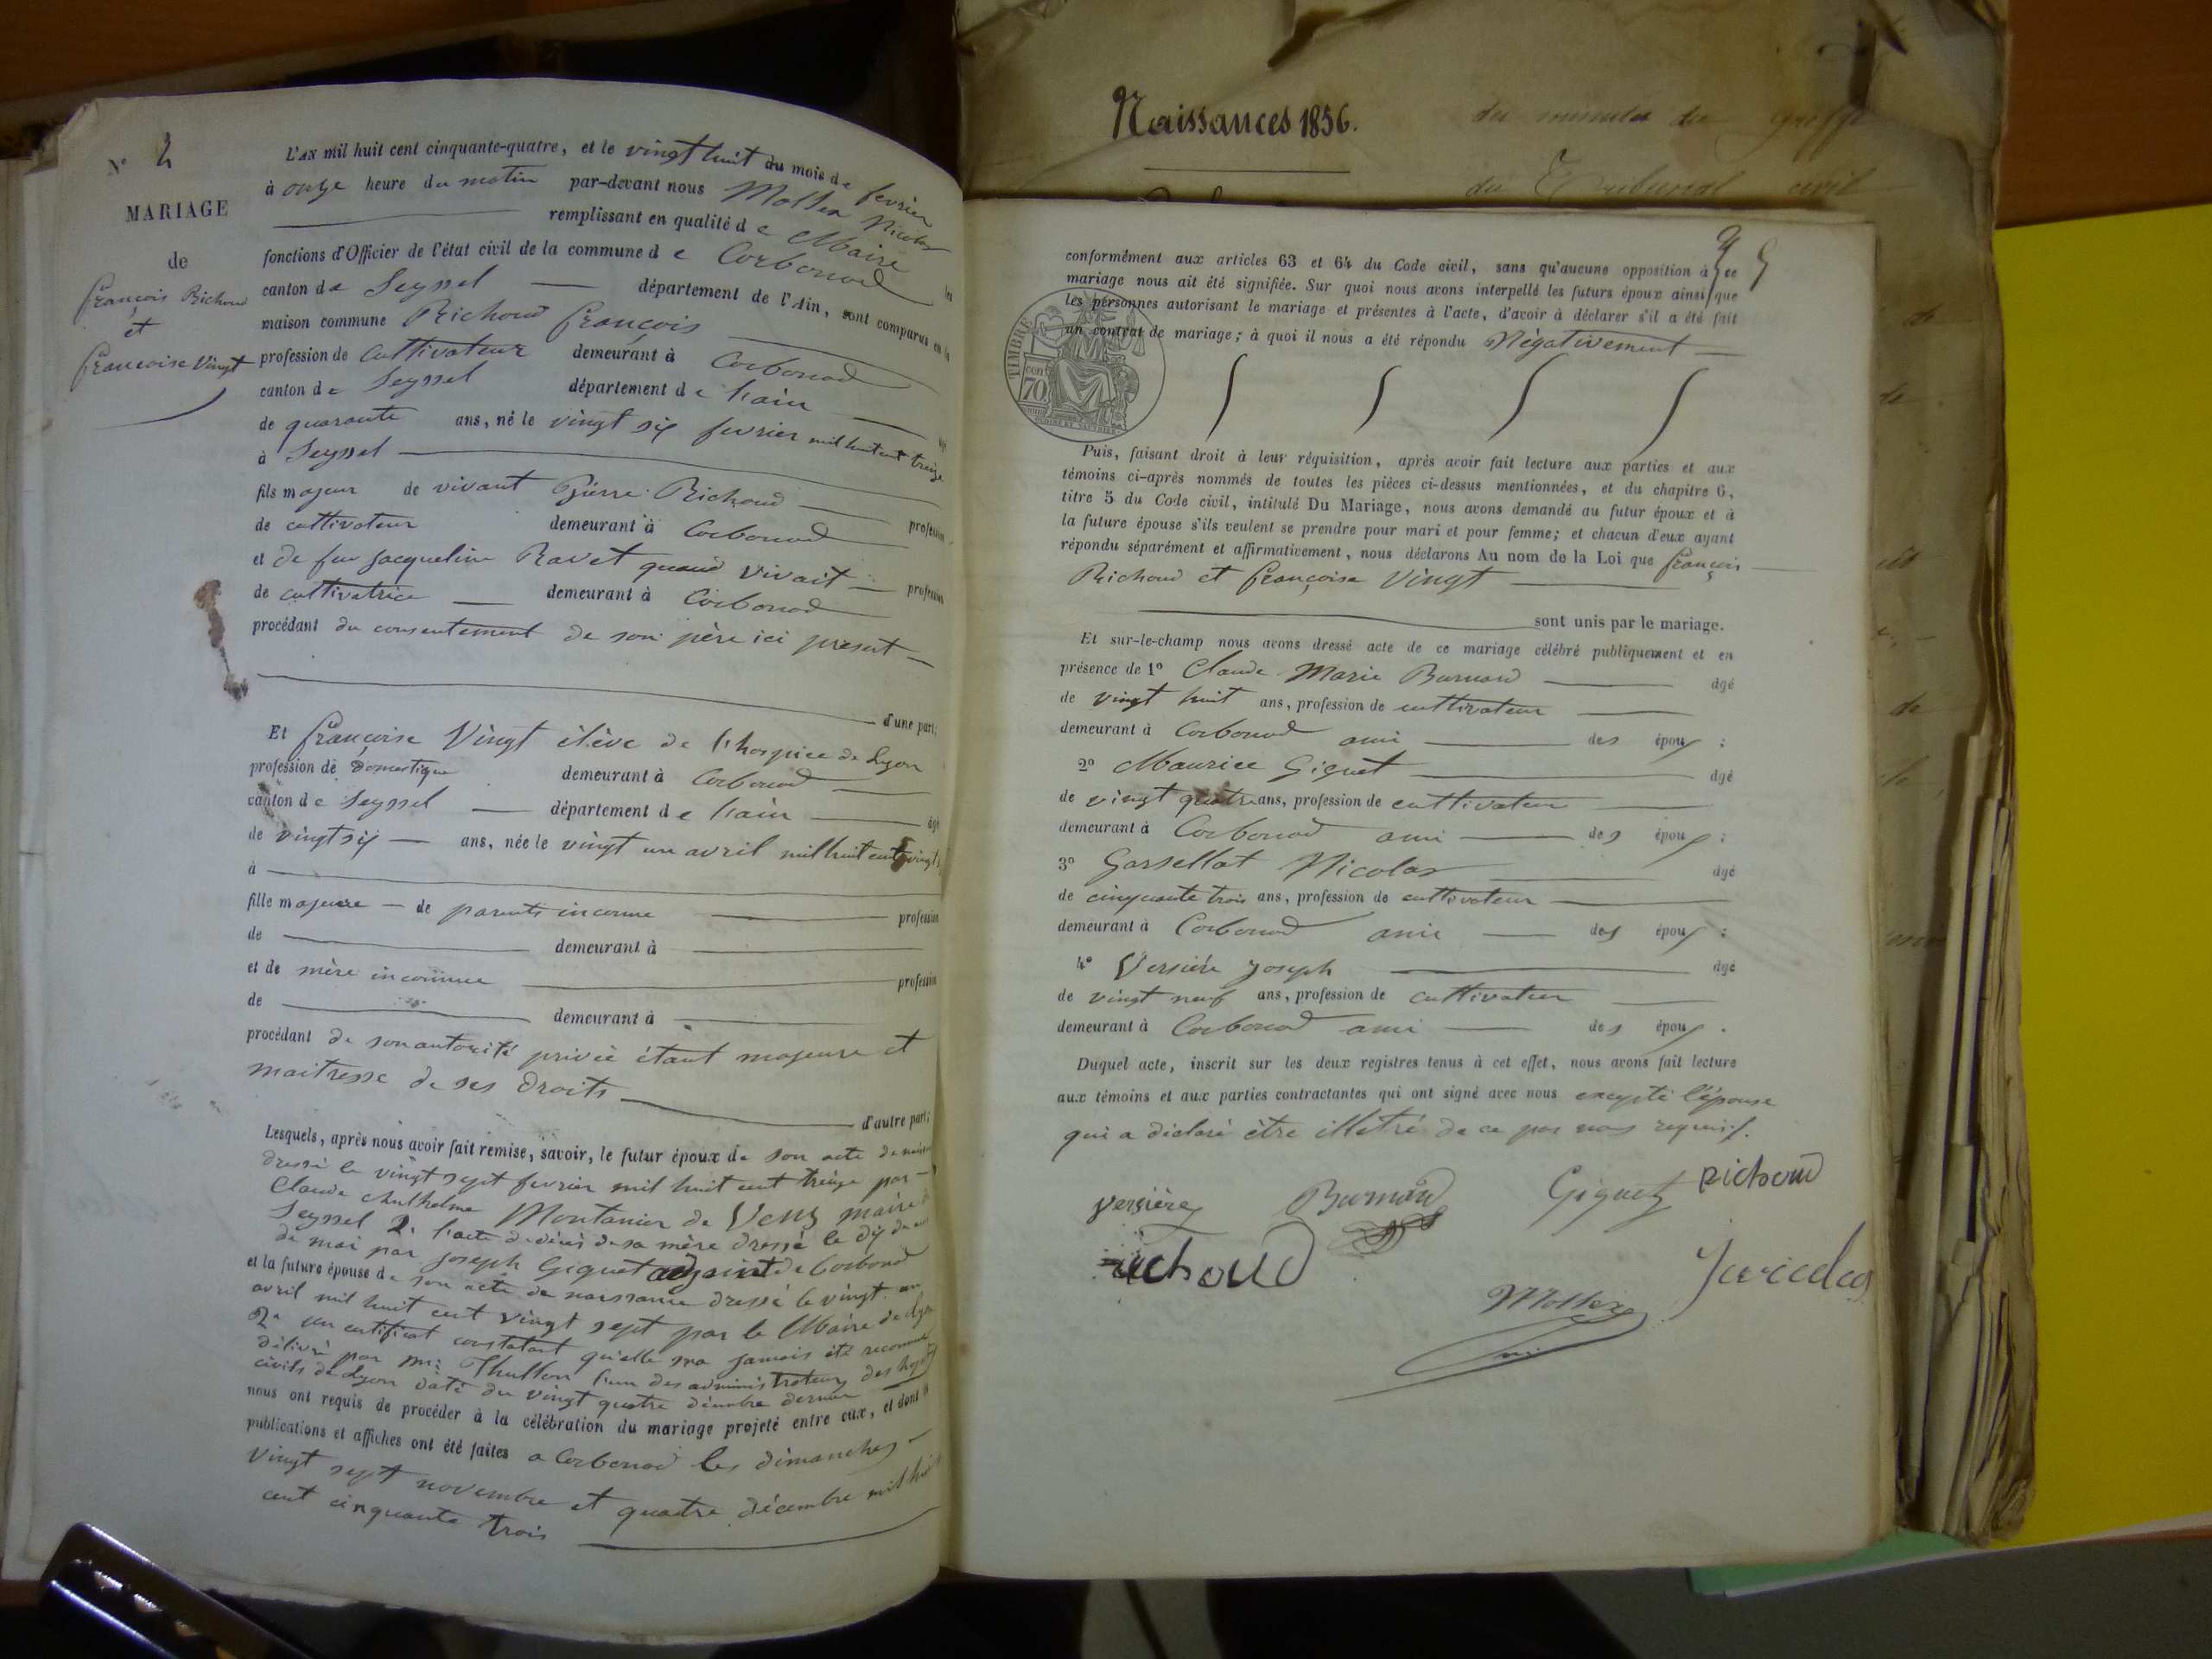 N° 2
MARIAGE
de
françois Richoud
et
francoise Vingt
L'AN mil huit cent cinquante-quatre, et le vingt huit du mois de fevrier
à onze heure du matin par-devant nous Mollex Nicolas
remplissant en qualité de Maire les
fonctions d'Officier de l'état civil de la commune de Corbonod
canton de Seyssel département de l'Ain, sont comparus en la
maison commune Richoud françois
profession de cultivateur demeurant à Corbonod
canton de Seyssel département de l'ain
de quarante ans, né le vingt six fevrier mil huit cent treize
à Seyssel
fils majeur de vivant Pierre Richoud profession
de cultivateur demeurant à Corbonod
et de feu jacqueline Ravet quand vivait profession
de cultivatrice demeurant à Corbonod
procédant du consentement de son père ici present
d'une part;
Et françoise Vingt élève de l'hospice de Lyon
profession de domestique demeurant à Corbonod
canton de Seyssel département de l'ain âgé
de vingt six ans, née le vingt un avril mil huit cent vingt
à
fille majeure de parents inconnu profession
de demeurant à
et de mère inconnue profession
de demeurant à
procédant de son autorité privée étant majeure et
maitresse de ses droits
d'autre part;
Lesquels, après nous avoir fait remise, savoir, le futur époux de son acte de
dressé le vingt sept fevrier mil huit cent treize par
Claude Anthelme Montanier de Vens maire
Seyssel 2° l'acte de décès de sa mère dressé le dix
de mai par joseph Giguet adjoint de Corbonod
et la future épouse de son acte de naissance dressé le vingt un
avril mil huit cent vingt sept par le Maire de Lyon
2° un certificat constatant qu'elle na jamais été reconnue
délivré par mr. Thullon l'un des administrateurs des
civils de Lyon daté du vingt quatre décembre dernier
nous ont requis de procéder à la célébration du mariage projeté entre eux, et dont
publications et affiches ont été faites a Corbonod les dimanches
Vingt sept novembre et quatre décembre mil huit
cent cinquante trois
Naissances 1856.
des minutes du greffe
du Tribunal civil
conformément aux articles 63 et 64 du Code civil, sans qu'aucune opposition à ce
mariage nous ait été signifiée. Sur quoi nous avons interpellé les futurs époux ainsi que
les personnes autorisant le mariage et présentes à l'acte, d'avoir à déclarer s'il a été fait
un contrat de mariage; à quoi il nous a été répondu Négativement
TIMBRE
70
Puis, faisant droit à leur réquisition, après avoir fait lecture aux parties et aux
témoins ci-après nommés de toutes les pièces ci-dessus mentionnées, et du chapitre 6,
titre 5 du Code civil, intitulé Du Mariage, nous avons demandé au futur époux et à
la future épouse s'ils veulent se prendre pour mari et pour femme; et chacun d'eux ayant
répondu séparément et affirmativement, nous déclarons Au nom de la Loi que françois
Richoud et françoise Vingt
sont unis par le mariage.
Et sur-le-champ nous avons dressé acte de ce mariage célébré publiquement et en
présence de 1° Claude Marie Burnand âgé
de vingt huit ans, profession de cultivateur
demeurant à Corbonod ami des époux ;
2° Maurice Giguet âgé
de vingt quatre ans, profession de cultivateur
demeurant à Corbonod ami des époux ;
3° Gassellat Nicolas âgé
de cinquante trois ans, profession de cultivateur
demeurant à Corbonod amie des époux ;
4° Versière Joseph âgé
de vingt neuf ans, profession de cultivateur
demeurant à Corbonod ami des époux .
Duquel acte, inscrit sur les deux registres tenus à cet effet, nous avons fait lecture
aux témoins et aux parties contractantes qui ont signé avec nous excepté l'épouse
qui a déclaré être illetré de ce par nous requis.
Versière Burnand Giguet Richoud
richoud
Mollex